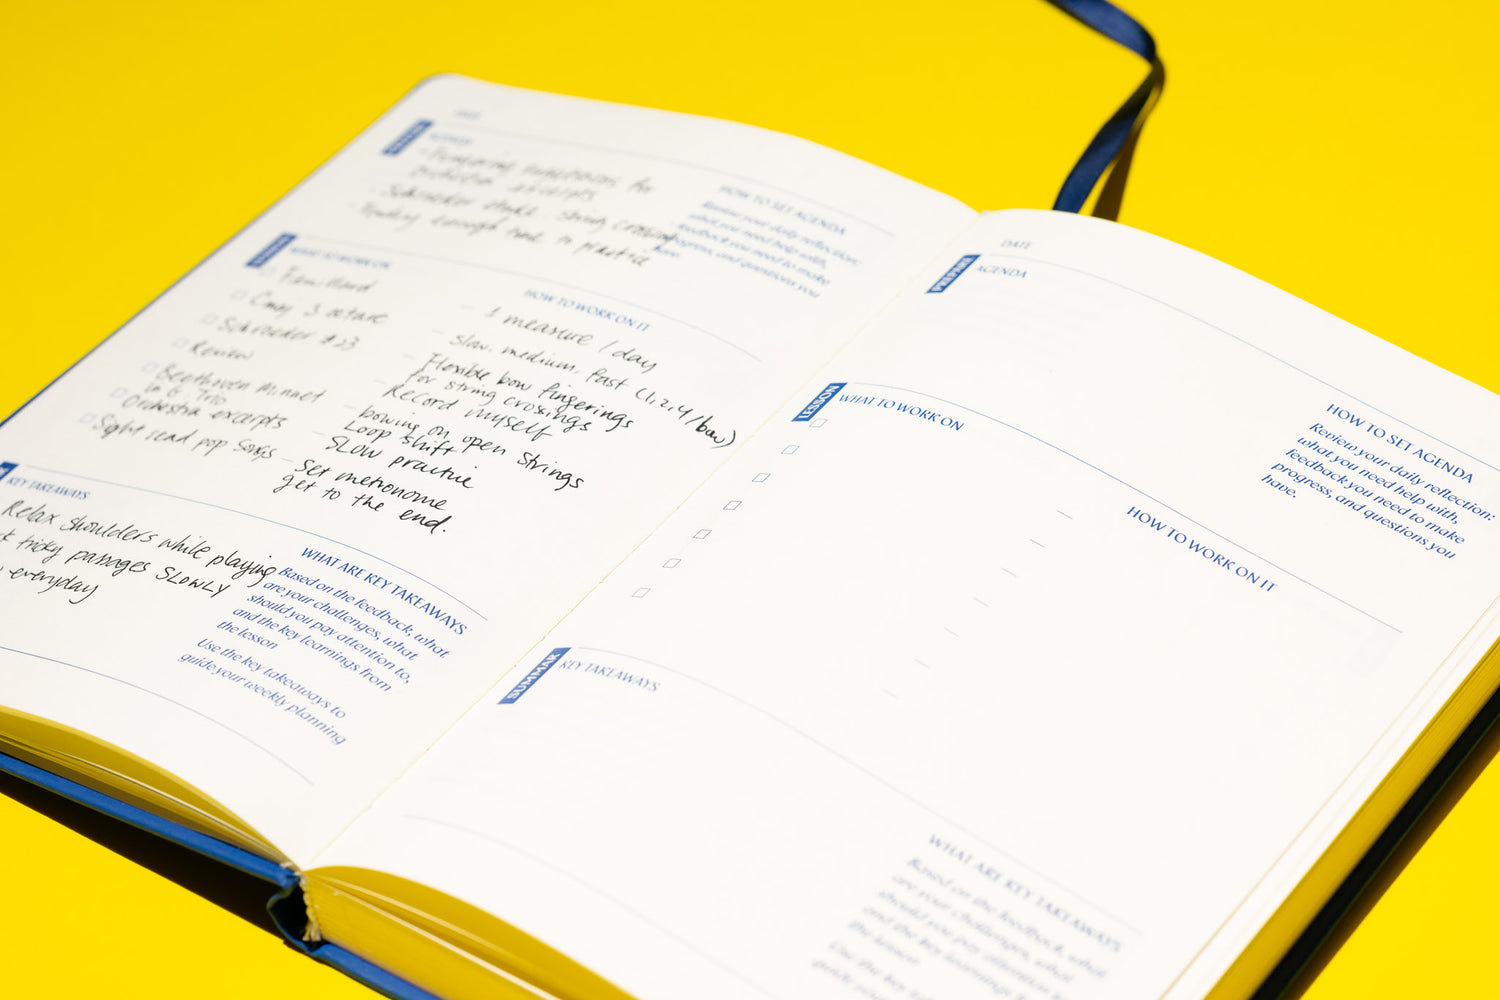 DATE
AGENDA
- Fingering suggestions for
orchestra excerpts
- Schroeder etude string crossing
- Finding enough time to practice
HOW TO SET AGENDA
Review your daily reflection:
what you need help with,
feedback you need to make
progress, and questions you
have.
LESSON
WHAT TO WORK ON
Feuillard
Cmaj 3 octave
Schroeder #23
Review
Beethoven Minuet
in G Trio
Orchestra excerpts
Sight read pop songs
HOW TO WORK ON IT
1 measure / day
slow, medium, fast (1,2,4/bow)
Flexible bow fingerings
for string crossings
Record myself
bowing on open strings
Loop shift
SLOW practice
Set metronome
get to the end.
KEY TAKEAWAYS
Relax shoulders while playing
tricky passages SLOWLY
everyday
WHAT ARE KEY TAKEAWAYS
Based on the feedback, what
are your challenges, what
should you pay attention to,
and the key learnings from
the lesson
Use the key takeaways to
guide your weekly planning
DATE
PREPARE
AGENDA
HOW TO SET AGENDA
Review your daily reflection:
what you need help with,
feedback you need to make
progress, and questions you
have.
LESSON
WHAT TO WORK ON
HOW TO WORK ON IT
SUMMARY
KEY TAKEAWAYS
WHAT ARE KEY TAKEAWAYS
Based on the feedback, what
are your challenges, what
should you pay attention to,
and the key learnings from
the lesson
Use the key takeaways to
guide your